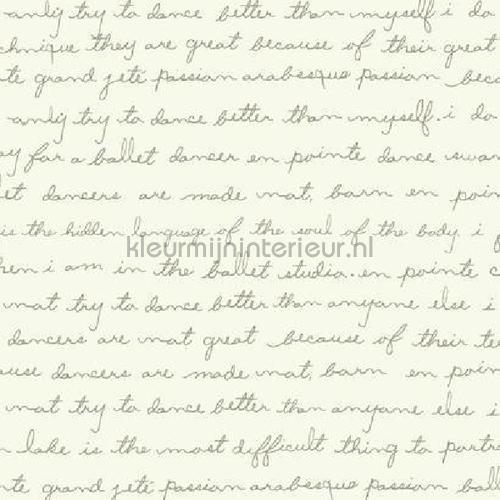 anly try to dance better than myself i do
chnique they are great because of their great
te grand jeté passion arabesque passion beco
anly try to dance better than myself. i do
ay for a ballet dancer en pointe dance swan
let dancers are made not, born en poin
is the hidden language of the soul of the body. i
kleurmijninterieur.nl
hen i am in the ballet studio. en pointe c
not try to dance better than anyone else i
dancers are not great because of their te
ause dancers are made not, born en poin
not try to dance better than anyone else i
n lake is the most difficult thing to portra
te grand jeté passion arabesque passion ball